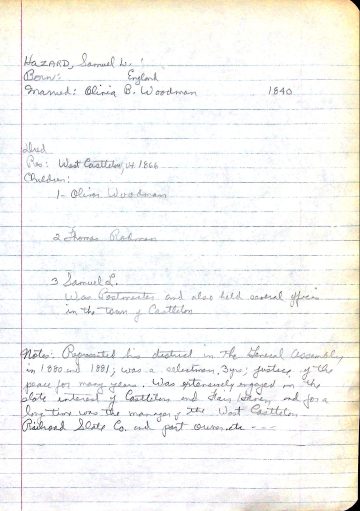 HAZARD, Samuel L.
Born: England
Married: Olivia B. Woodman 1840
Died
Res: West Castleton, Vt. 1866
Children:
1- Oliver Woodman
2 Thomas Rodman
3 Samuel L.
Was Postmaster and also held several offices
in the town of Castleton
Notes: Represented his district in the General Assembly
in 1880 and 1881; was a selectman 3 yrs; justice of the
peace for many years. Was extensively engaged in the
slate interest of Castleton and Fair Haven, and for a
long time was the manager of the West Castleton
Railroad Slate Co. and part owner etc ---